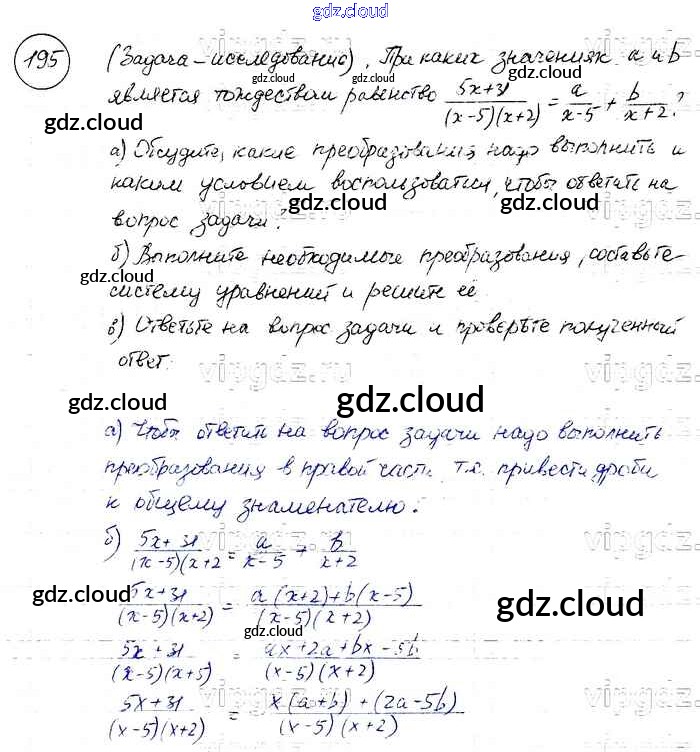 gdz.cloud
195 (Задача-исследование). При каких значениях a и b
является тождеством равенство (5x+31)/((x-5)(x+2)) = a/(x-5) + b/(x+2)?
а) Обсудите, какие преобразования надо выполнить и
каким условием воспользоваться, чтобы ответить на
вопрос задачи?
б) Выполните необходимые преобразования, составьте
систему уравнений и решите её
в) Ответьте на вопрос задачи и проверьте полученный
ответ.
а) Чтобы ответить на вопрос задачи надо выполнить
преобразования в правой части т.е. привести дроби
к общему знаменателю.
б) (5x+31)/((x-5)(x+2) = a/(x-5) + b/(x+2)
(5x+31)/((x-5)(x+2)) = (a(x+2)+b(x-5))/((x-5)(x+2))
(5x+31)/((x-5)(x+5)) = (ax+2a+bx-5b)/((x-5)(x+2))
(5x+31)/((x-5)(x+2)) = (x(a+b)+(2a-5b))/((x-5)(x+2))
gdz.cloud
gdz.cloud
gdz.cloud
gdz.cloud
gdz.cloud
gdz.cloud
gdz.cloud
gdz.cloud
gdz.cloud
gdz.cloud
gdz.cloud
gdz.cloud
gdz.cloud
gdz.cloud
vipgdz.ru
vipgdz.ru
vipgdz.ru
vipgdz.ru